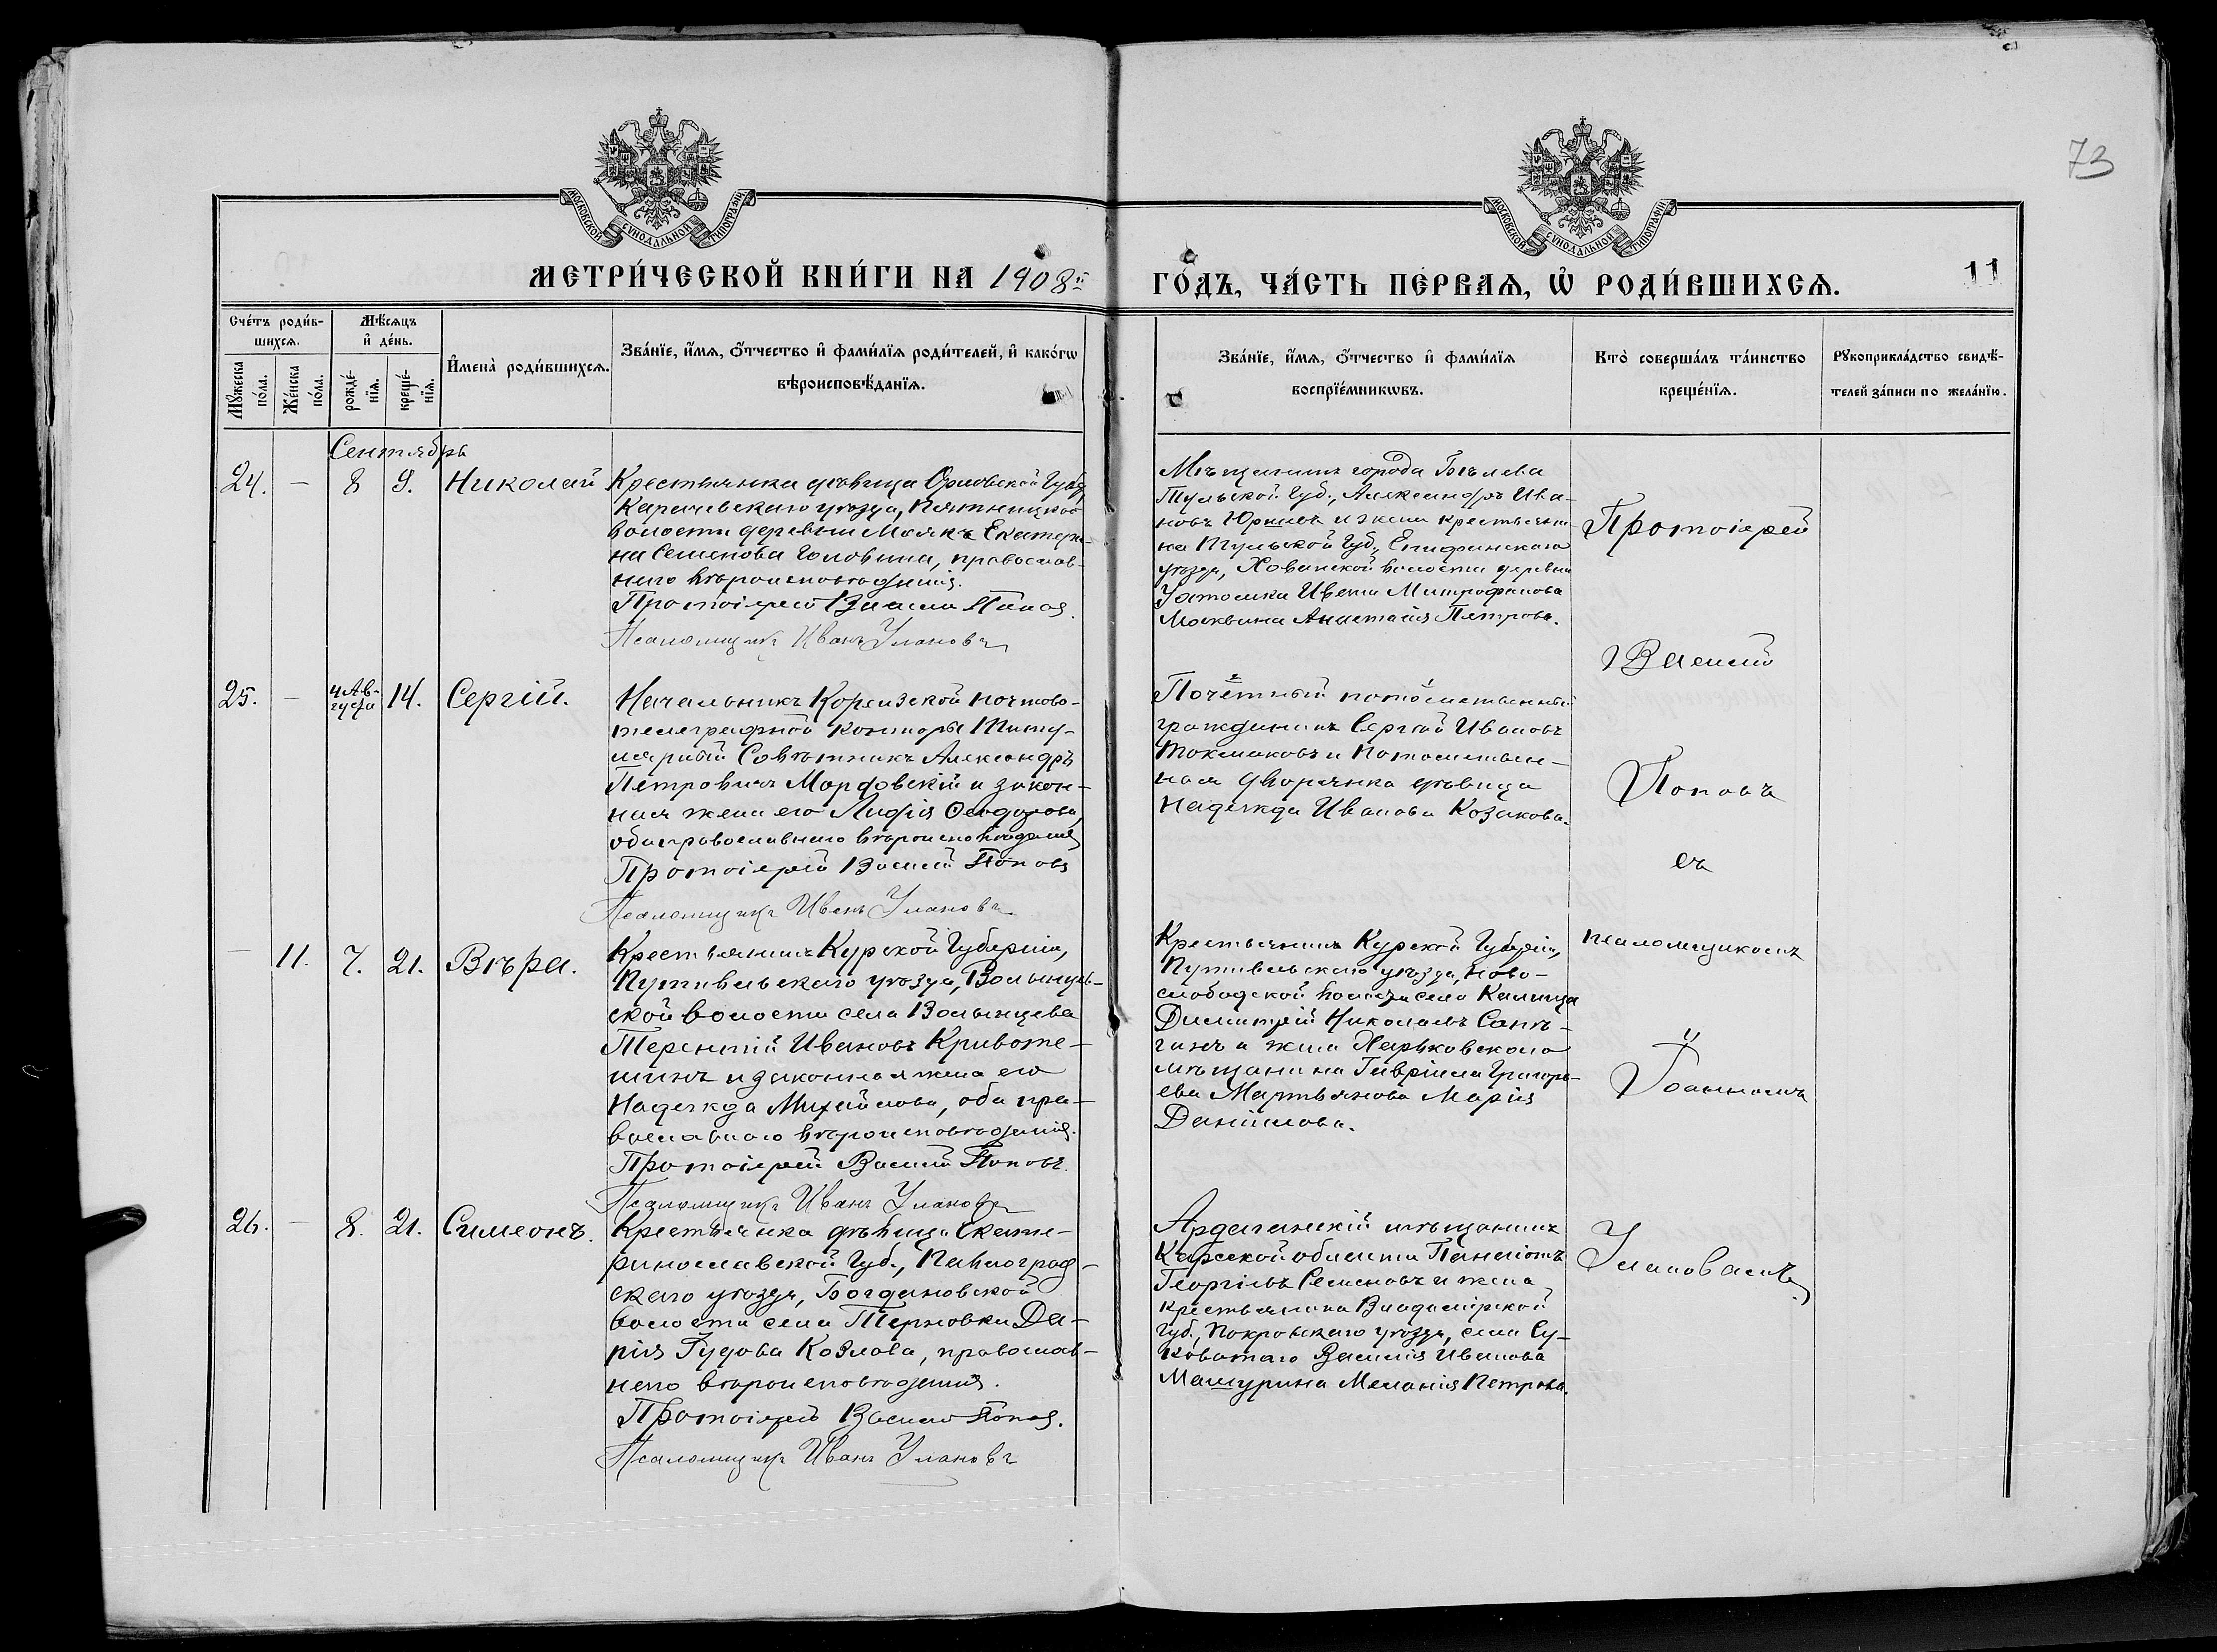 73
МОСКОВСКОЙ СѴНОДАЛЬНОЙ ТИПОГРАФІИ
МОСКОВСКОЙ СѴНОДАЛЬНОЙ ТИПОГРАФІИ
МЕТРИ́ЧЕСКОЙ КНИ́ГИ НА 1908й
ГО́ДЪ, ЧА́СТЬ ПЕ́РВАѦ, Ѡ РОДИ́ВШИХСѦ.
11
Сче́тъ роди́в-
шихсѧ.
Мꙋжеска по́ла.
Же́нска по́ла.
Мѣ́сѧцъ
и҆ де́нь.
рожде́-
нїѧ.
креще́-
нїѧ.
И҆мена̀ роди́вшихсѧ.
Зва́нїе, и҆́мѧ, ѻ҆́тчество и҆ фами́лїѧ роди́телей, и҆ како́гѡ
вѣроисповѣ́данїѧ.
Зва́нїе, и҆́мѧ, ѻ҆́тчество и҆ фами́лїѧ
воспрїе́мникѡвъ.
Кто̀ соверша́лъ та́инство
креще́нїѧ.
Рꙋкоприкла́дство свидѣ́-
телей за́писи по жела́нїю.
Сентябрь
24. — 8 9. Николай
Крестьянка дѣвица Орловской Губ.,
Карачевскаго уѣзда, Пятницкой
волости деревни Маякъ Екатери-
на Семенова Головина, православ-
наго вѣроисповѣданія.
Протоіерей Василій Поповъ.
Псаломщикъ Иванъ Улановъ
Мѣщанинъ города Бѣлева
Тульской Губ., Александръ Ива-
новъ Юршевъ и жена крестьяни-
на Тульской Губ., Епифанскаго
уѣзда, Хованской волости деревни
Ивана Митрофанова
Москвина Анастасія Петрова.
25. — 4 Ав-
густа 14. Сергій.
Начальникъ Кореизской почтово-
телеграфной конторы Титу-
лярный Совѣтникъ Александръ
Петровичъ Марфовскій и закон-
ная жена его Лидія Ѳеодорова,
оба православнаго вѣроисповѣданія
Протоіерей Василій Поповъ
Псаломщикъ Иванъ Улановъ
Почетный потомственный
гражданинъ Сергѣй Ивановъ
Токмаковъ и Потомствен-
ная дворянка дѣвица
Надежда Иванова Козакова.
— 11. 7. 21. Вѣра.
Крестьянинъ Курской Губерніи,
Путивльскаго уѣзда, Волынцев-
ской волости села Волынцева
Терентій Ивановъ Кривоше-
инъ и законная жена его
Надежда Михайлова, оба пра-
вославнаго вѣроисповѣданія.
Протоіерей Василій Поповъ.
Псаломщикъ Иванъ Улановъ
Крестьянинъ Курской Губерніи,
Путивльскаго уѣзда, Ново-
слободской волости села Калища
Димитрій Николаевъ Сапѣ-
гинъ и жена Харьковскаго
мѣщанина Гавріила Григорь-
ева Мартьянова Марія
Даніилова.
26. — 8. 21. Симеонъ.
Крестьянка дѣвица Екате-
ринославской Губ., Павлоград-
скаго уѣзда, Богдановской
волости села Терновки Да-
рія Козлова, православ-
наго вѣроисповѣданія.
Протоіерей Василій Поповъ.
Псаломщикъ Иванъ Улановъ
Ардаганскій мѣщанинъ
Карсской области Панаіотъ
Георгіевъ Семеновъ и жена
крестьянина Владимірской
Губ., Покровскаго уѣзда, села Су-
коватаго Василія Иванова
Машурина Меланія Петрова.
Протоіерей
Василій
Поповъ
съ
псаломщикомъ
Іоанномъ
Улановымъ